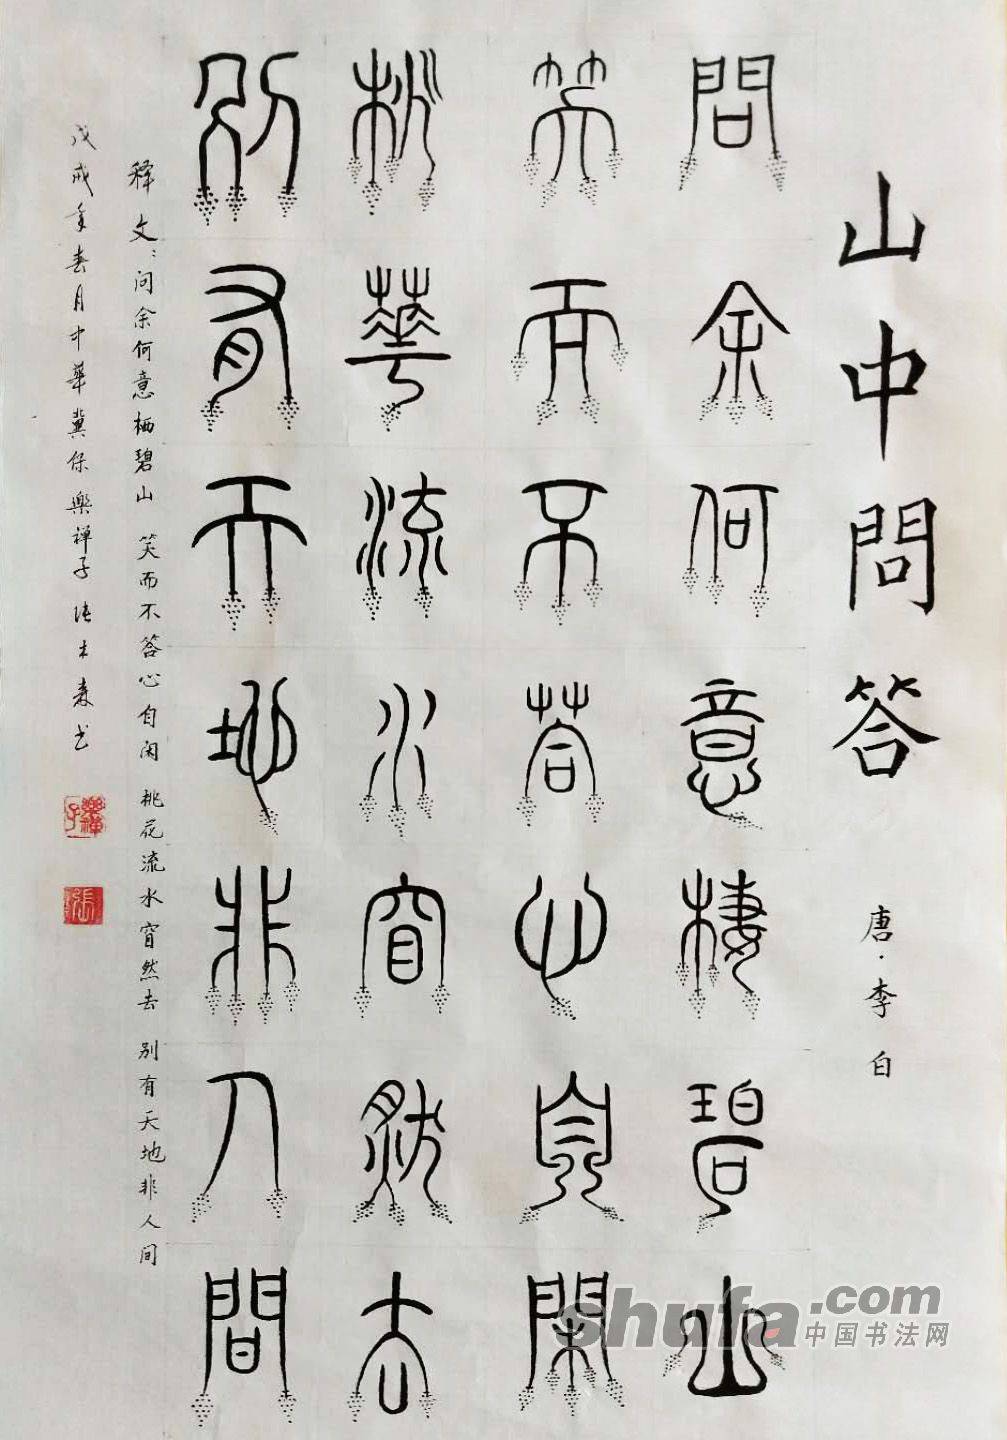 山中問答
唐·李白
問余何意棲碧山
笑而不荅心自閑
桃華流水窅然去
別有天地非人間
释文：问余何意栖碧山 笑而不答心自闲 桃花流水窅然去 别有天地非人间
戊戌年春月中華冀保樂禅子张士森书
樂禅子
張
shufa.com
中国书法网